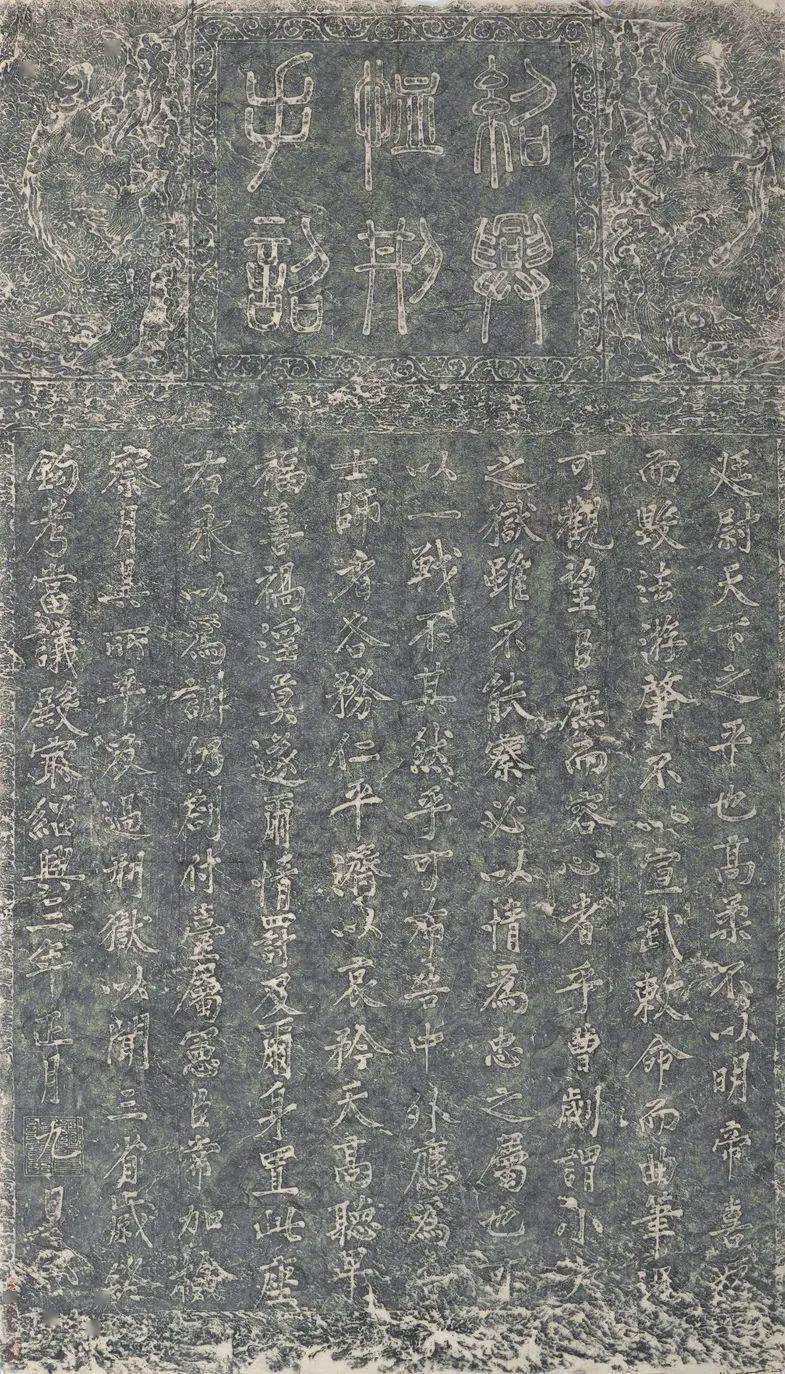 紹興
恤刑
手詔
廷尉天下之平也髙柔不以明帝喜怒
而毀法游肇不以宣武敕命而曲筆況
可觀望臣庶而容心者乎曹劌謂小大
之獄雖不能察必以情爲忠之屬也可
以一戰不其然乎可布告中外應爲吾
士師者各務仁平濟以哀矜天高聽卑
福善禍淫莫遂爾情罰及爾身置此座
右永以爲訓仍劄付臺屬憲臣常加檢
察月具所平反過刑獄以聞三省歲終
鉤考當議殿最紹興二年正月九日